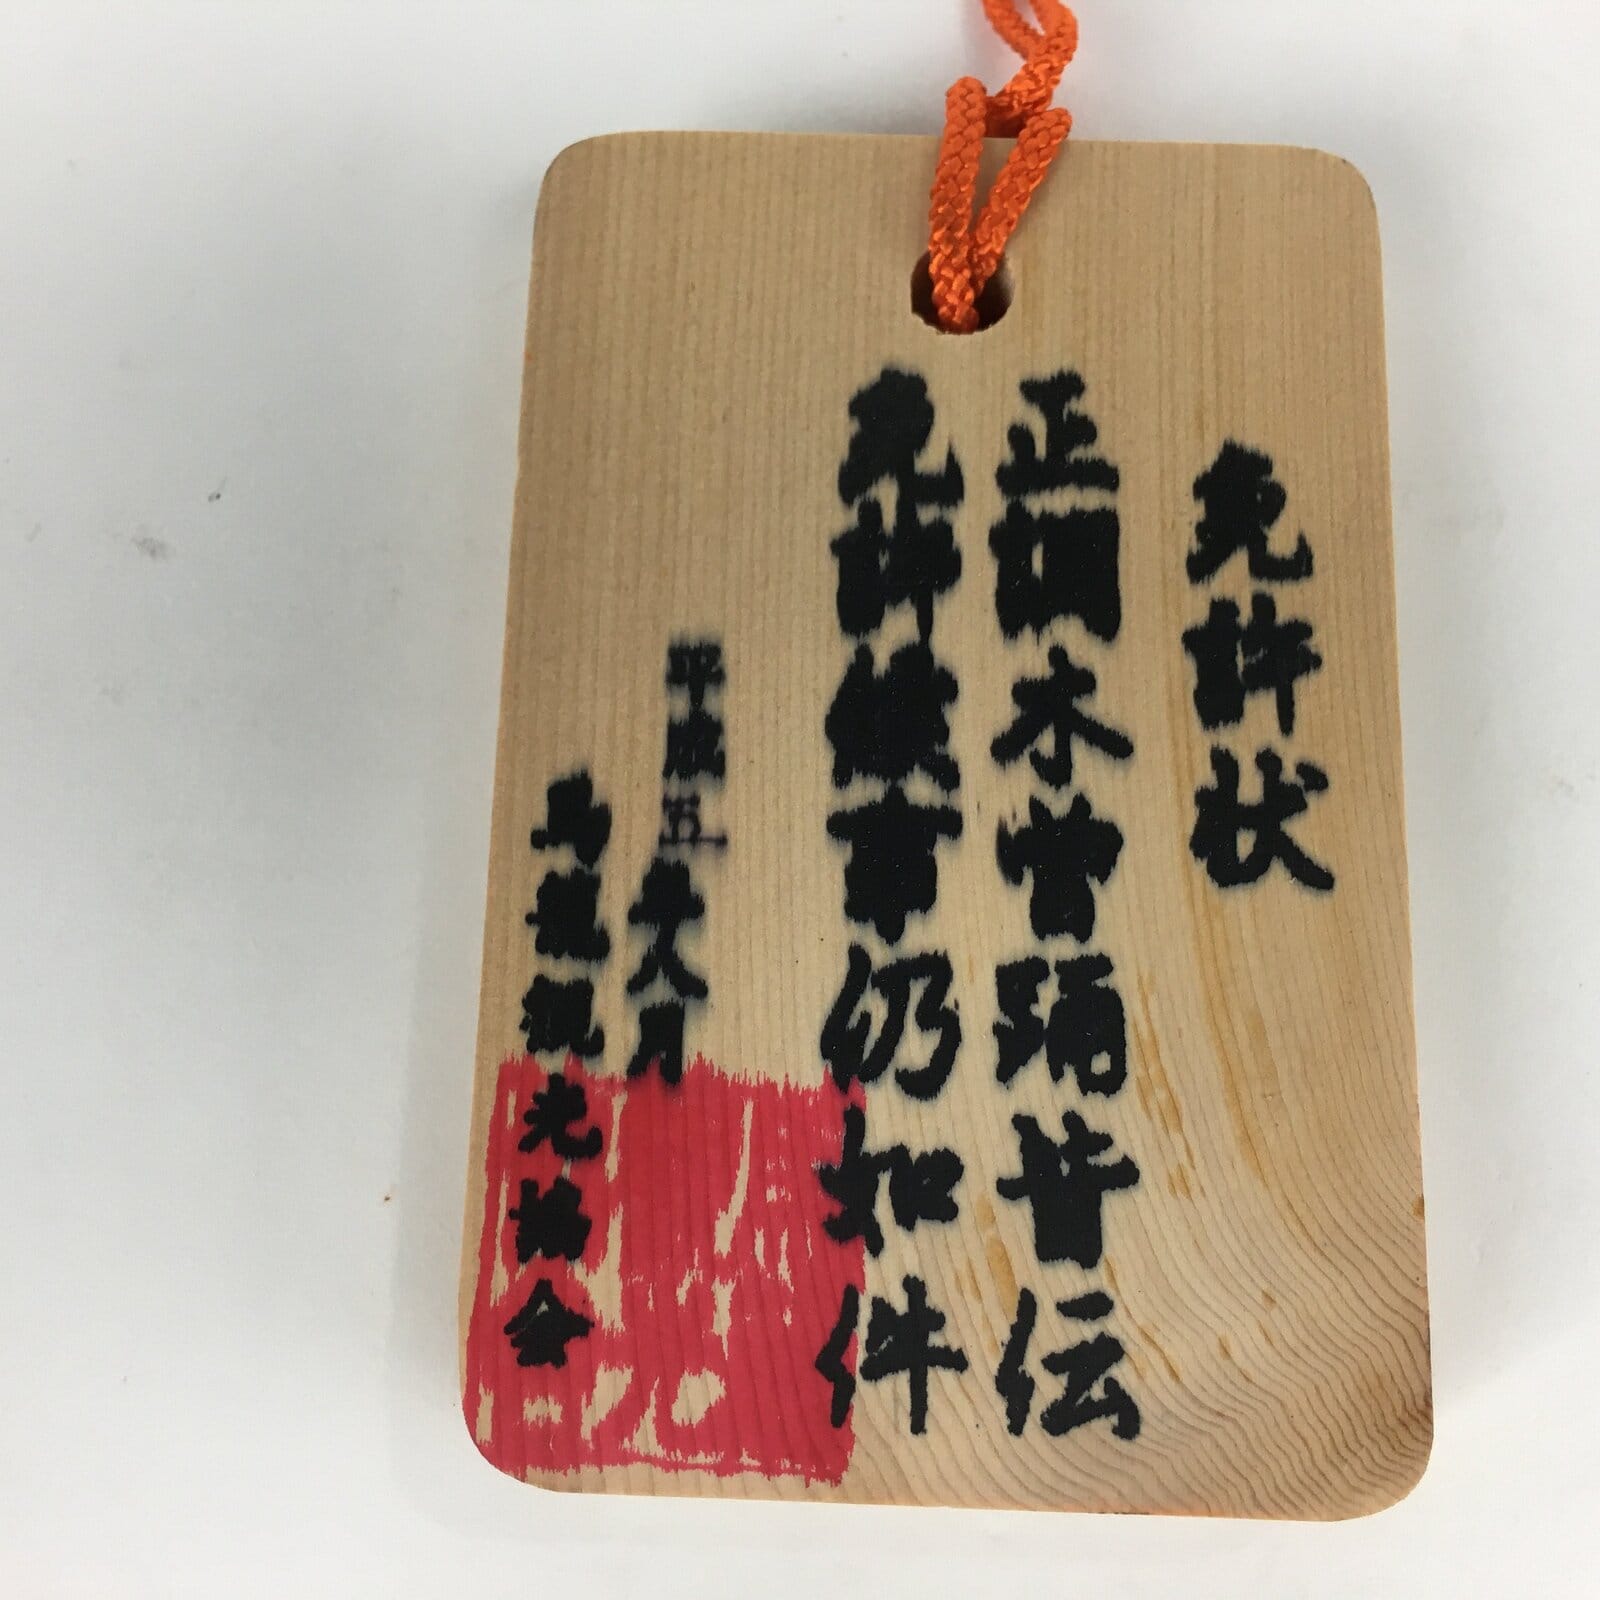 免許状
正調木曽踊皆伝
免許事仍如件
平成五年八月
馬籠観光協会